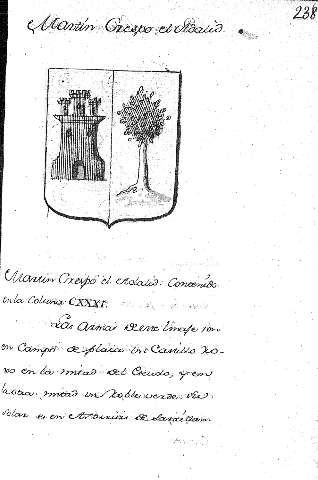 238
Martin Crespo el Adalid.
Martin Crespo el Adalid. Contenido
en la Coluna CXXXI.
Las Armas de este linage son
en Campo de plata un Castillo Ro-
xo en la mitad del Escudo, y en
la otra mitad un Roble verde. Su
Solar es en